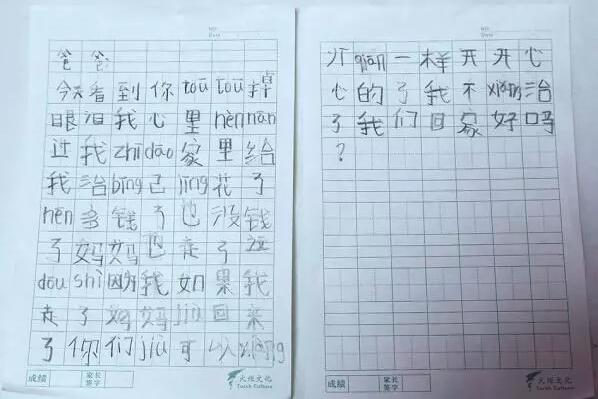 NO.
Date
爸爸:
今天看到你tōu tōu掉
眼泪我心里hěn nán
过我zhī dào家里给
我治bìng己jīng花了
hěn多钱了也没钱
了妈妈也走了这
dōu shì因为我如果我
走了妈妈jiù回来
了你们jiù可以xiàng
成绩
家长签字
火炬文化
Torch Culture
NO.
Date
以qián一样开开心
心的了我不xiǎng治
了我们回家好吗
?
成绩
家长签字
火炬文化
Torch Culture